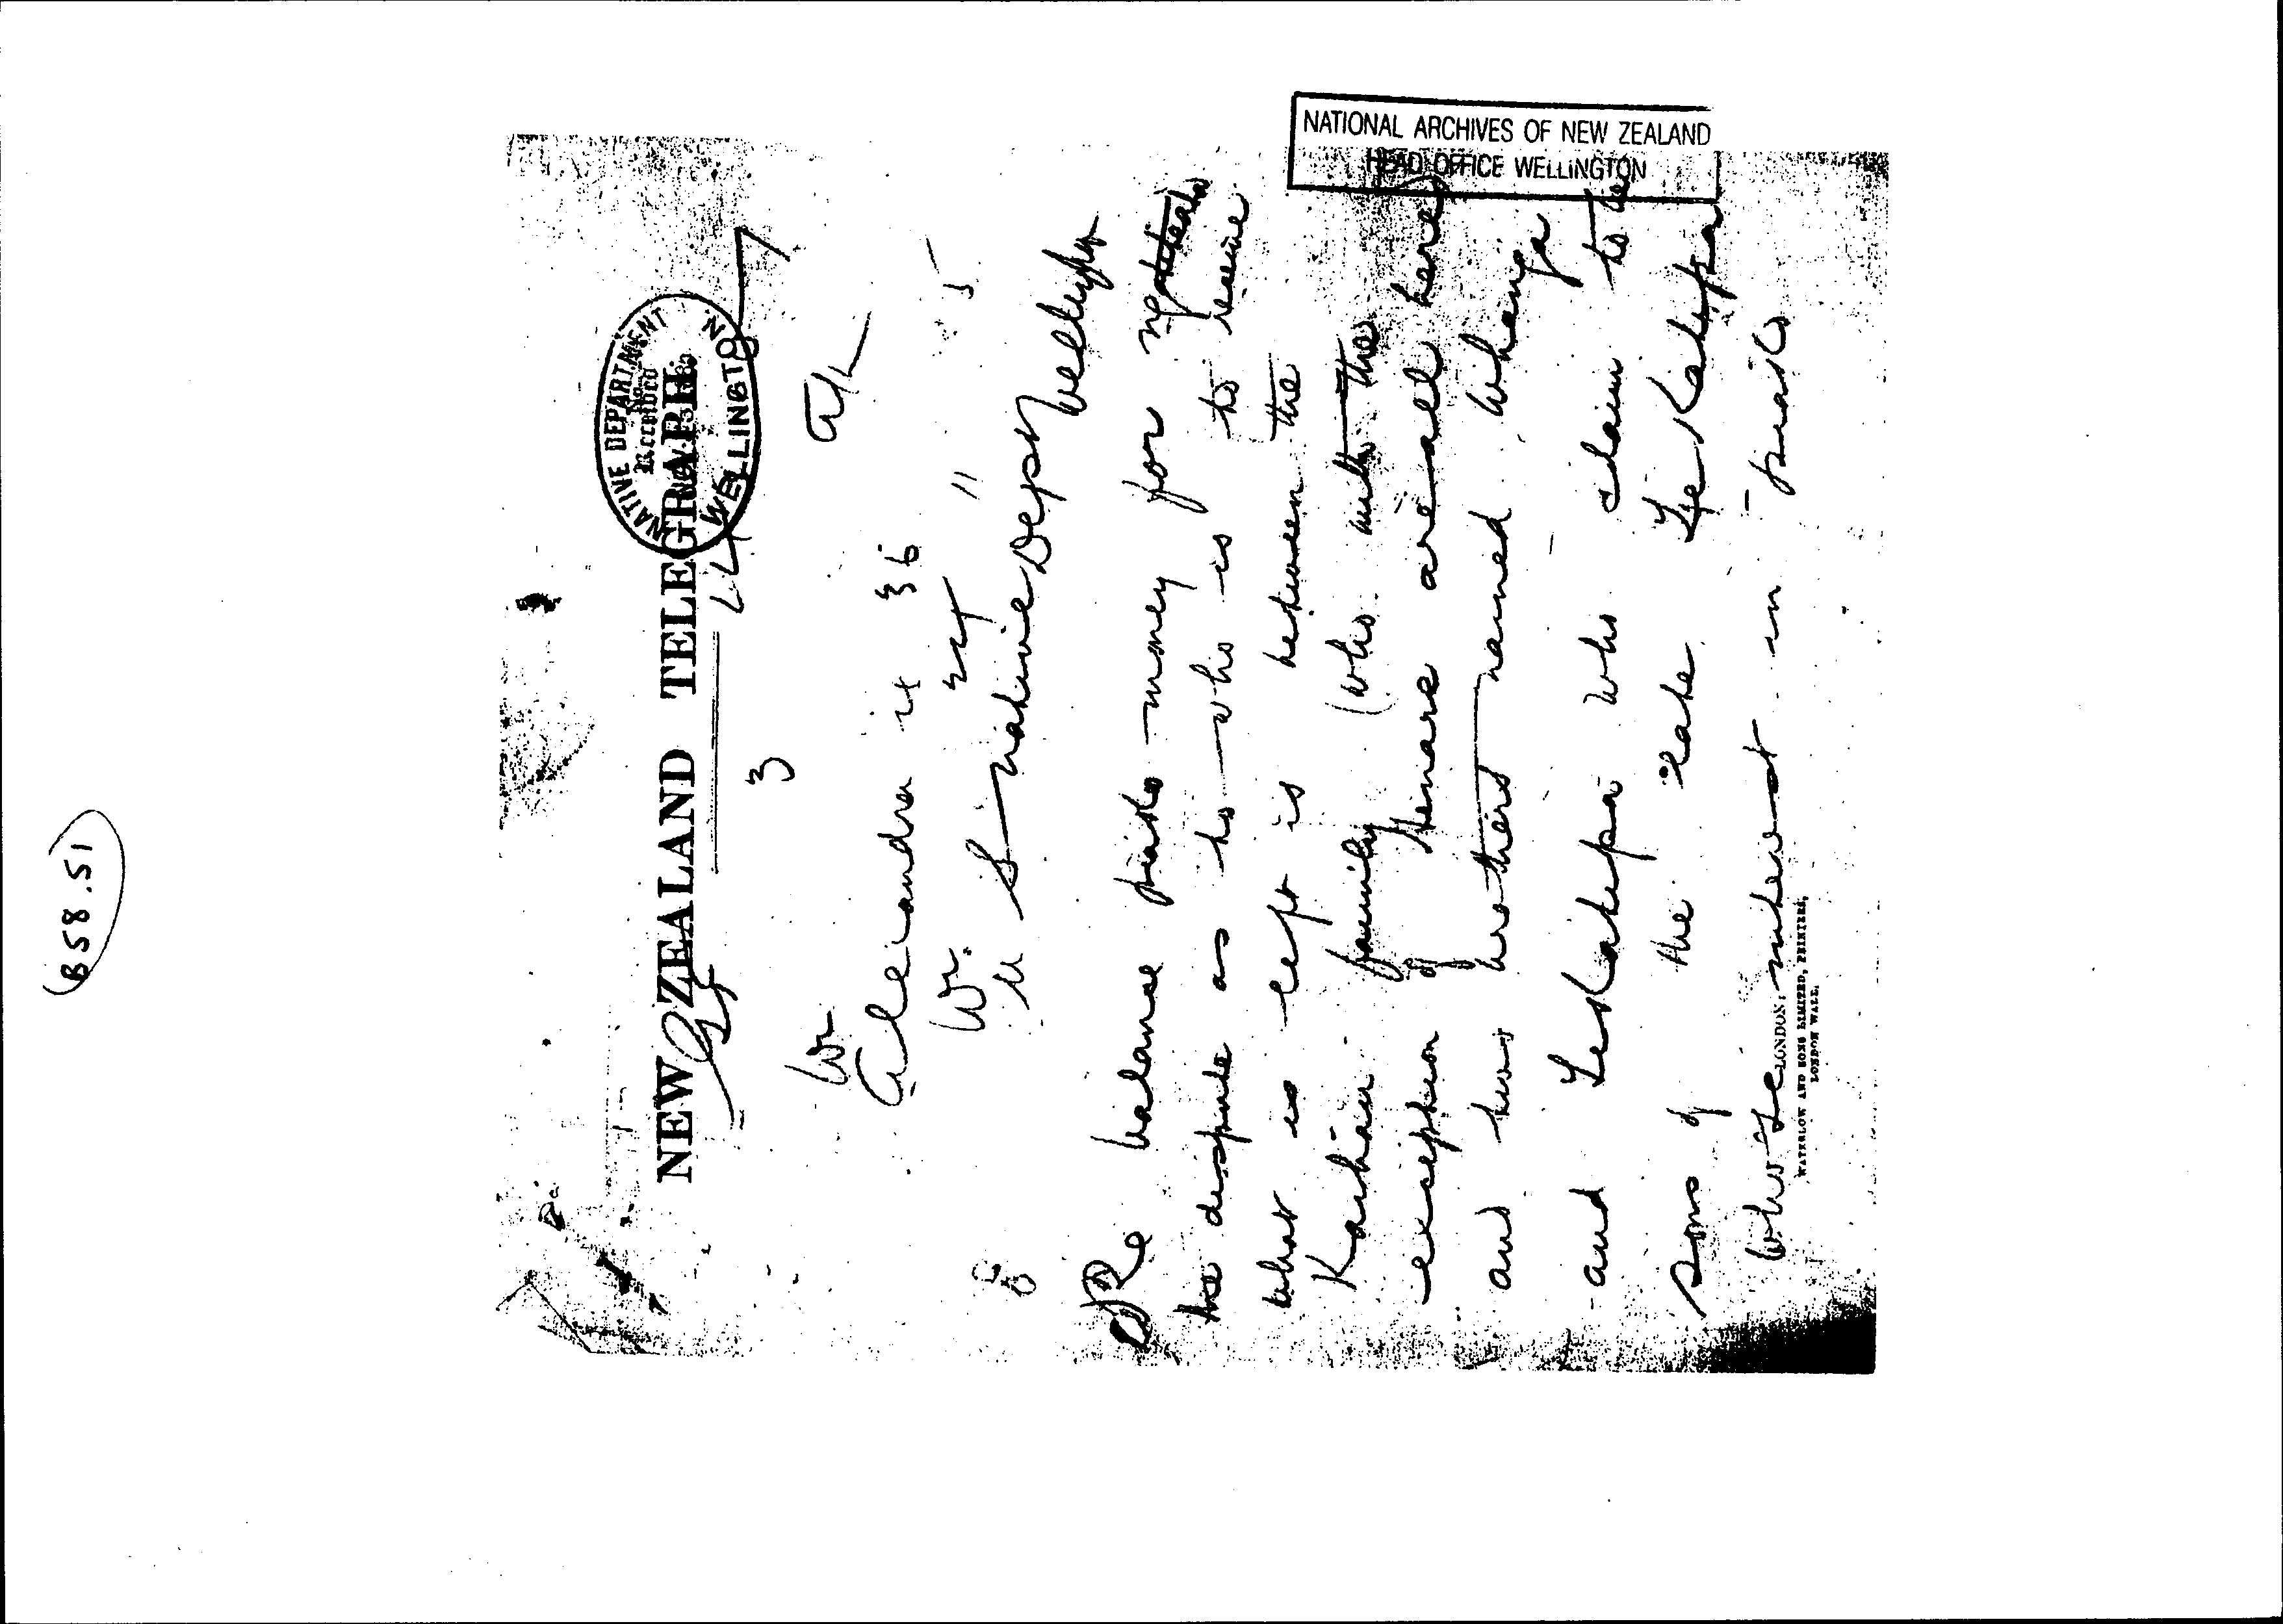 B58.51
NATIONAL ARCHIVES OF NEW ZEALAND
HEAD OFFICE WELLINGTON
NEW ZEALAND TELEGRAPH.
NATIVE DEPARTMENT
RECEIVED
WELLINGTON
3
Wr
Alexandra 36
Wr. 24 11 5
U S native Dept Wellington
Re balance purchase money for
the dispute as to who is to receive
what is left is between the
Kaihau family (who with the
exception of Henare are all here)
and two brothers named Whanga
and Te Katipa who claim to be
sons of the late Te Katipa
whose interest in
LONDON:
WATERLOW AND SONS LIMITED, PRINTERS,
LONDON WALL.